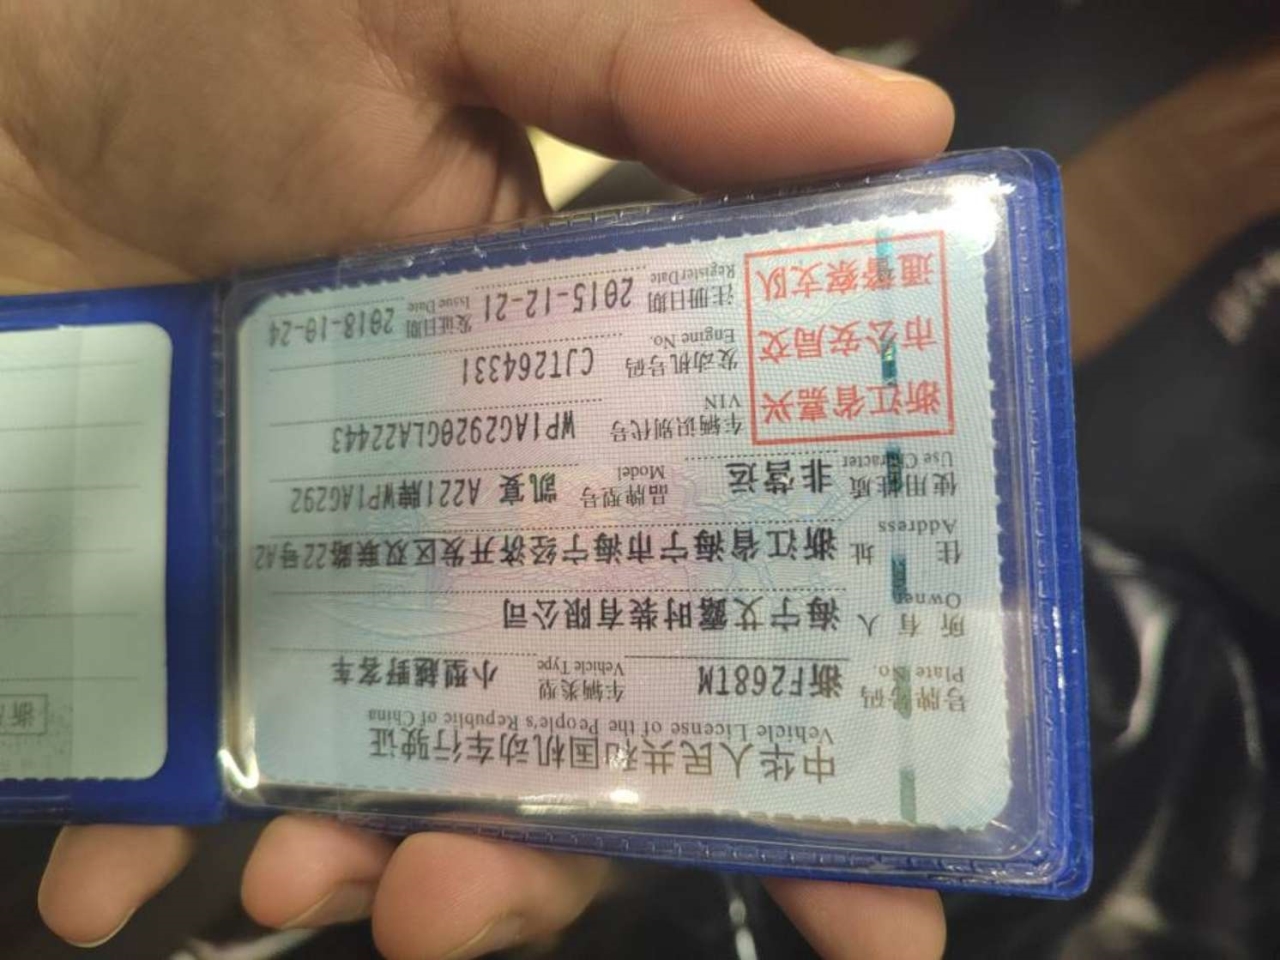 中华人民共和国机动车行驶证
Vehicle License of the People's Republic of China
号牌号码 浙F268TM 车辆类型 小型越野客车
Plate No. Vehicle Type
所有人 海宁艾露时装有限公司
Owner
住址 浙江省海宁市海宁经济开发区双联路22号A2
Address
使用性质 非营运 品牌型号 凯宴 A221牌WP1AG292
Use Character Model
浙江省嘉兴
市公安局交
通警察支队
车辆识别代号 WP1AG2920GLA22443
VIN
发动机号码 CJT264331
Engine No.
注册日期 2015-12-21 发证日期 2018-10-24
Register Date Issue Date